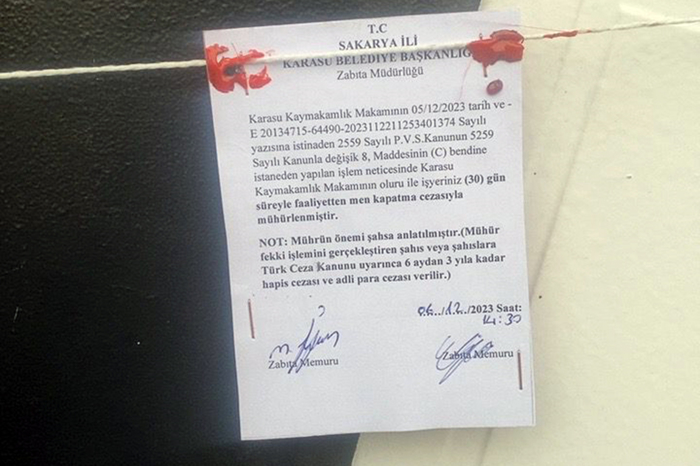 T.C
SAKARYA İLİ
KARASU BELEDİYE BAŞKANLIĞI
Zabıta Müdürlüğü
Karasu Kaymakamlık Makamının 05/12/2023 tarih ve -
E 20134715-64490-2023112211253401374 Sayılı
yazısına istinaden 2559 Sayılı P.V.S.Kanunun 5259
Sayılı Kanunla değişik 8, Maddesinin (C) bendine
istaneden yapılan işlem neticesinde Karasu
Kaymakamlık Makamının oluru ile işyeriniz (30) gün
süreyle faaliyetten men kapatma cezasıyla
mühürlenmiştir.
NOT: Mührün önemi şahsa anlatılmıştır.(Mühür
fekki işlemini gerçekleştiren şahıs veya şahıslara
Türk Ceza Kanunu uyarınca 6 aydan 3 yıla kadar
hapis cezası ve adli para cezası verilir.)
06../12../2023 Saat:
14:30
Zabıta Memuru
Zabıta Memuru